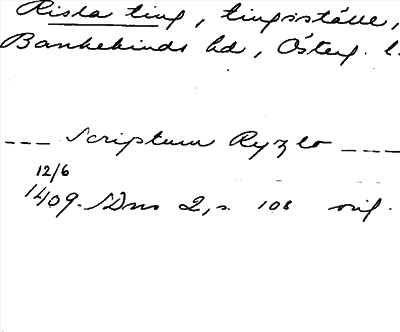 Rista ting, tingsställe,
Bankekinds hd, Österg. l.
--- Scriptum Ryzlo ----
12/6
1409. SDns 2, s. 108 orig.